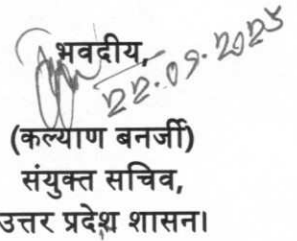 भवदीय,
22.09.2025
(कल्याण बनर्जी)
संयुक्त सचिव,
उत्तर प्रदेश शासन।